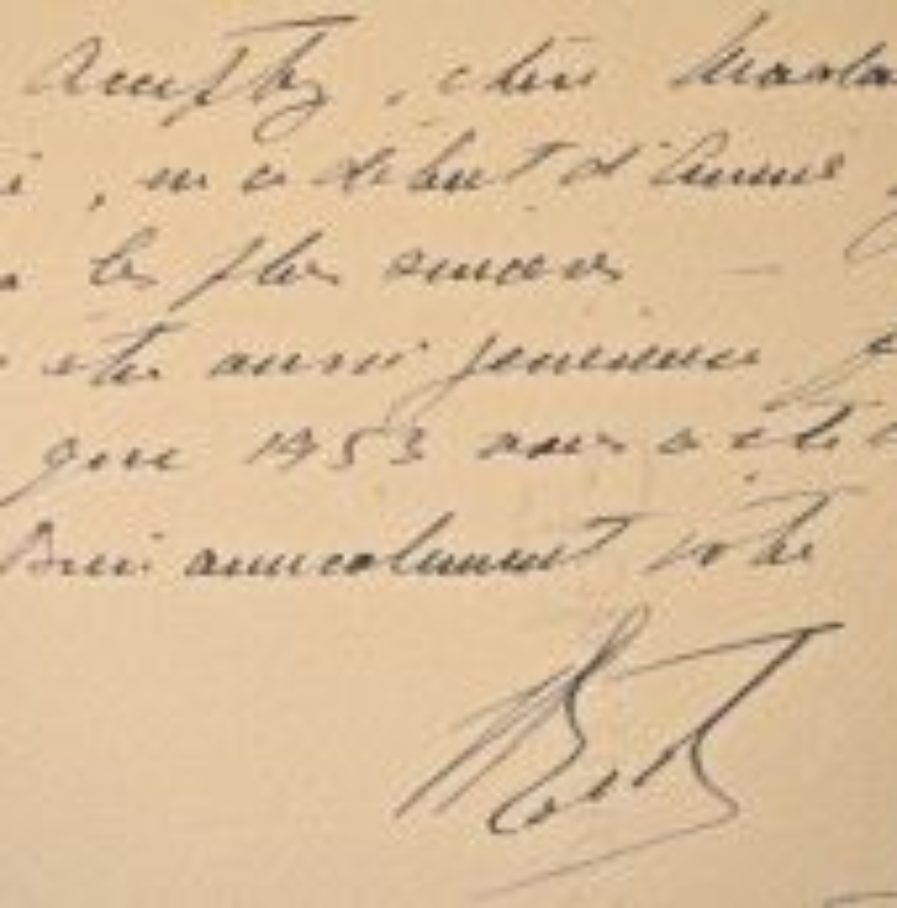 Acceptez, chère Mada
, en ce début d'Année
les plus sincères —
être aussi généreuse
que 1953 vous a été
Bien amicalement votre